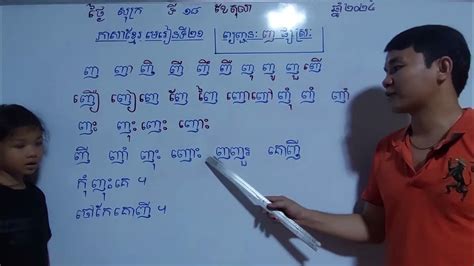 ថ្ងៃ សុក្រ ទី ១៨ ខែតុលា ឆ្នាំ ២០២៤
ភាសាខ្មែរ មេរៀនទី២១ ព្យញ្ជនៈ ញ ផ្សំស្រៈ
ញ ញា ញិ ញី ញឹ ញឺ ញុ ញូ ញួ ញើ
ញឿ ញៀ ញេ ញែ ញៃ ញោ ញៅ ញុំ ញំ ញាំ
ញះ ញុះ ញេះ ញោះ
ញី ញាំ ញុះ ញោះ ញញួរ គោញី
កុំញុះគេ ។
ចៅកែគោញី ។